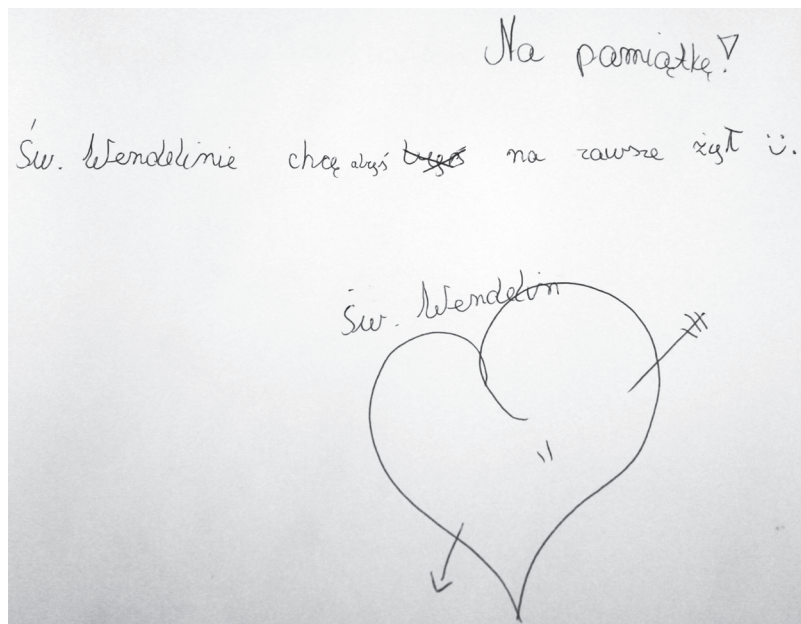 Na pamiątkę!
Św. Wendelinie chcę abyś na zawsze żył ü.
Św. Wendelin